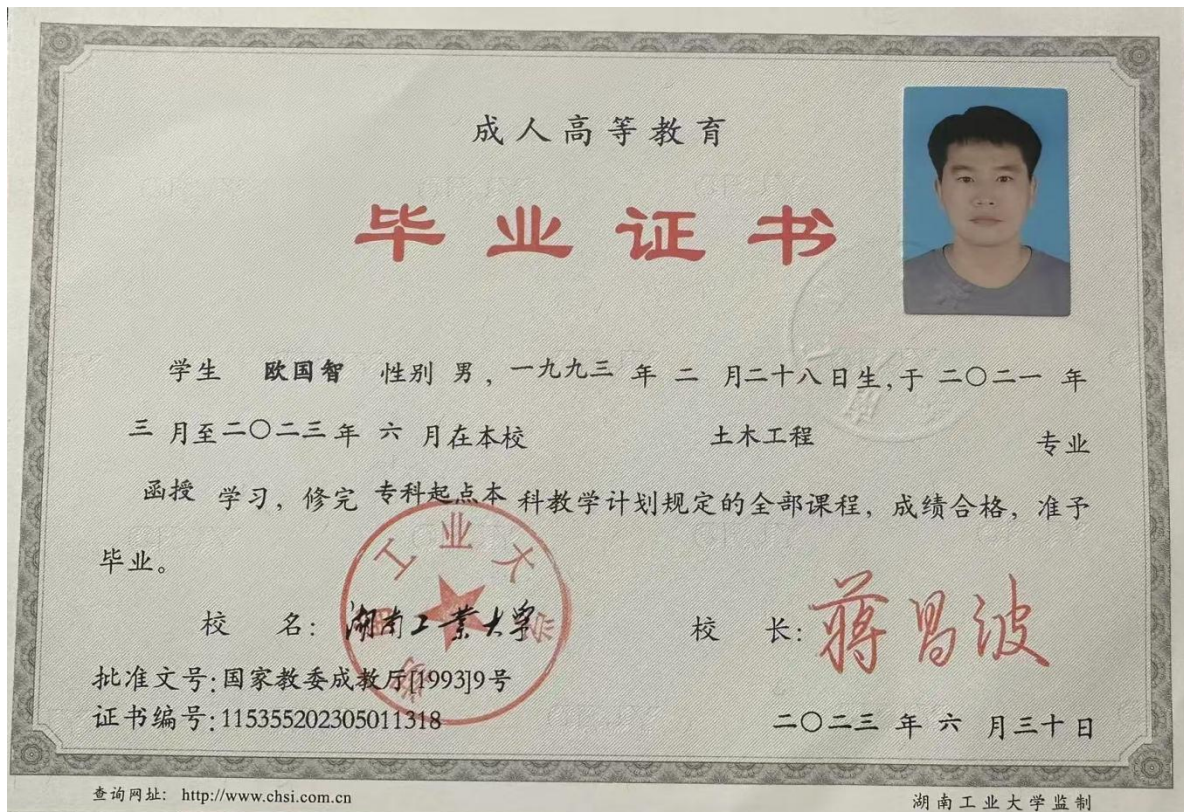 成人高等教育
毕业证书
学生 欧国智 性别 男，一九九三 年 二 月二十八日生，于 二〇二一 年
三 月至二〇二三年 六 月在本校 土木工程 专业
函授 学习，修完 专科起点本 科教学计划规定的全部课程，成绩合格，准予
毕业。
校 名：湖南工業大学
校 长：蒋昌波
湖南工业大学
批准文号：国家教委成教厅[1993]9号
证书编号：115355202305011318
二〇二三 年 六 月三十日
查询网址： http://www.chsi.com.cn
湖南工业大学监制